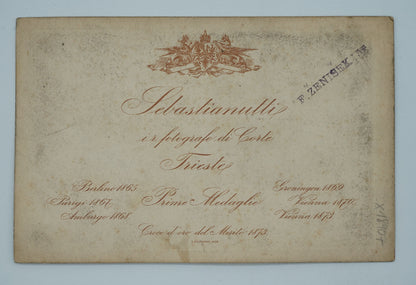 F. ZENISEK
Sebastianutti
i. r. fotografo di Corte
Trieste
Berlino 1865.
Parigi 1867.
Amburgo 1868.
Prime Medaglie
Groningen 1869
Vienna 1870.
Vienna 1873.
Croce d'oro del Merito 1873.